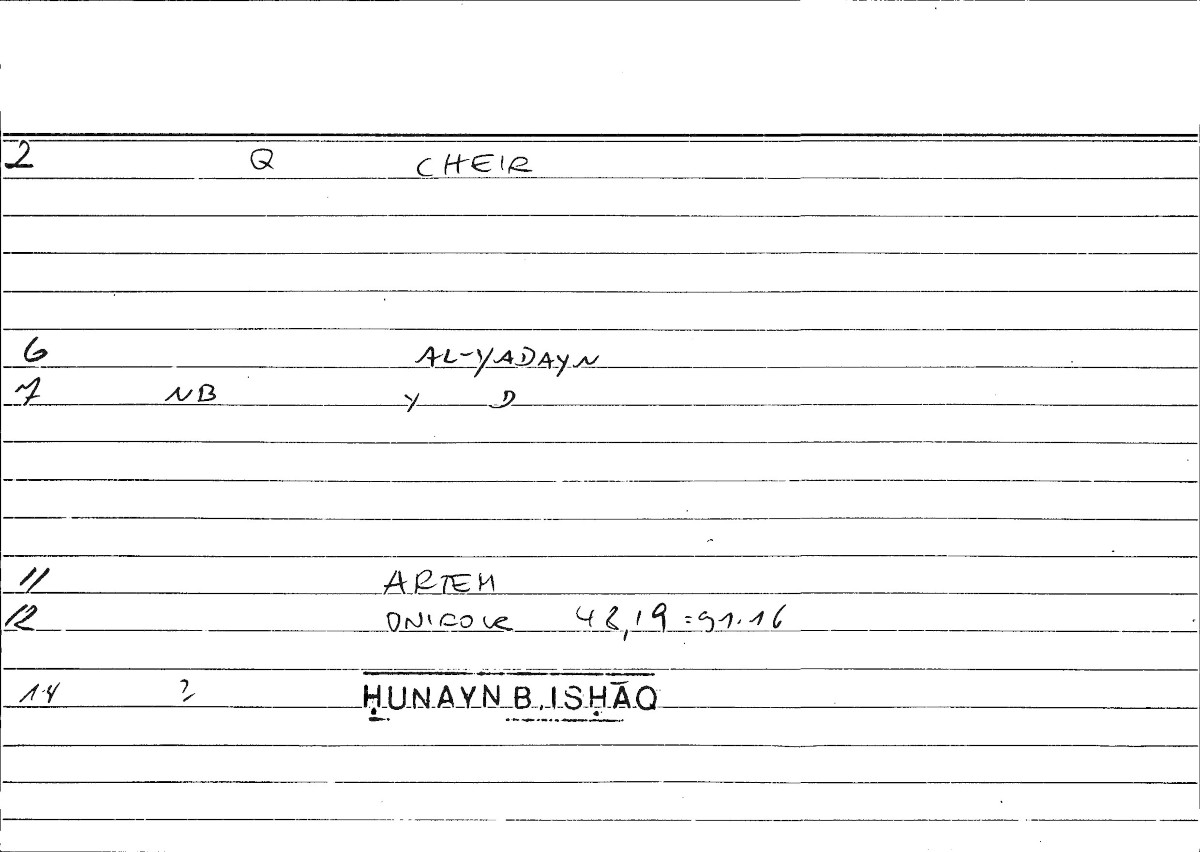 2 Q CHEIR
6 AL-YADAYN
7 NB Y D
11 ARTEM
12 ONIROCR 48,19 = 91.16
14 ? ḤUNAYN B. ISḤĀQ